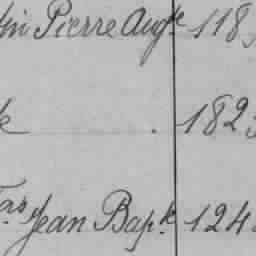 Pierre Aug.te 118
182
Jean Bap.te 124